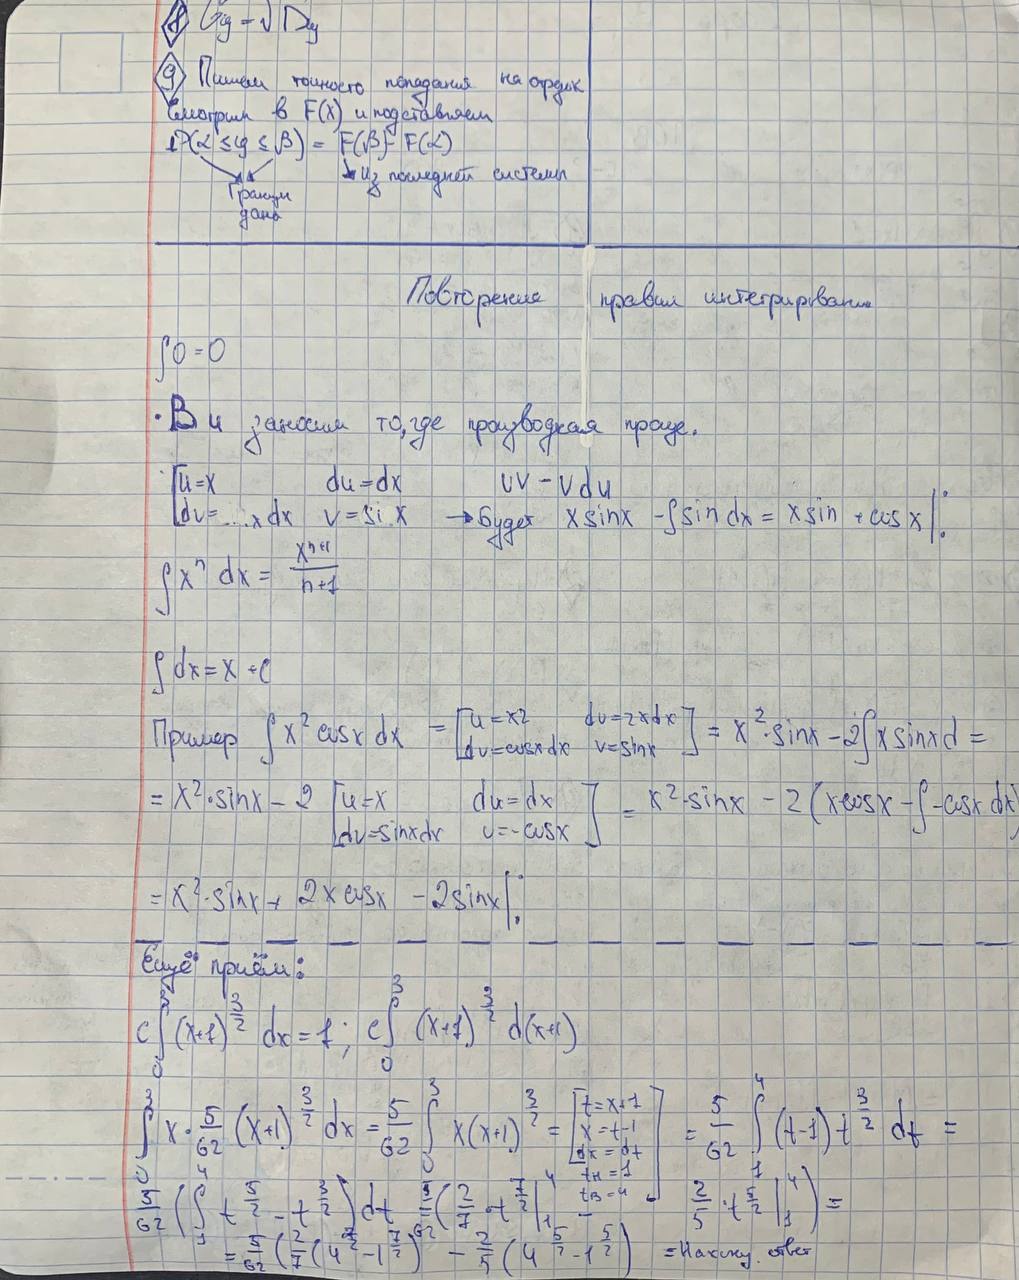 8 Gy = √Dy
9 Пишем точность попадания на отрезк
Смотрим в F(x) и подставляем
P(α ≤ y ≤ β) = F(β) - F(α)
↳ из последней системы
Границы
даны
Повторение правил интегрирования
∫0 = 0
· В u заносим то, где производная проще.
[u=x du=dx uv - vdu
dv=...x dx v=si x → будет x sinx - ∫sin dx = x sin + cos x |:
∫x^n dx = x^(n+1)/(n+1)
∫dx = x + C
Пример ∫x² cosx dx = [u=x2 du=2xdx dv=cosxdx v=sinx] = x²·sinx - 2∫x sinx d =
= x²·sinx - 2 [u=x du=dx dv=sinxdx v=-cosx] = x²·sinx - 2(x·cosx - ∫-cosx dx)
= x²·sinx + 2x cosx - 2sinx |:
Ещё приём:
C∫₀³(x+1)^(3/2) dx = 1; C∫₀³(x+1)^(3/2) d(x+1)
∫₀³ x·5/62 (x+1)^(3/2) dx = 5/62 ∫₀³ x(x+1)^(3/2) = [t=x+1 x=t-1 dx=dt tн=1 tв=4] = 5/62 ∫₁⁴ (t-1)t^(3/2) dt =
5/62 (∫₁⁴ t^(5/2) - t^(3/2)) dt 5/62 (2/7·t^(7/2)|₁⁴ - 2/5·t^(5/2)|₁⁴) =
= 5/62 (2/7 (4^(7/2) - 1^(7/2)) - 2/5 (4^(5/2) - 1^(5/2)) = Нахожу ответ